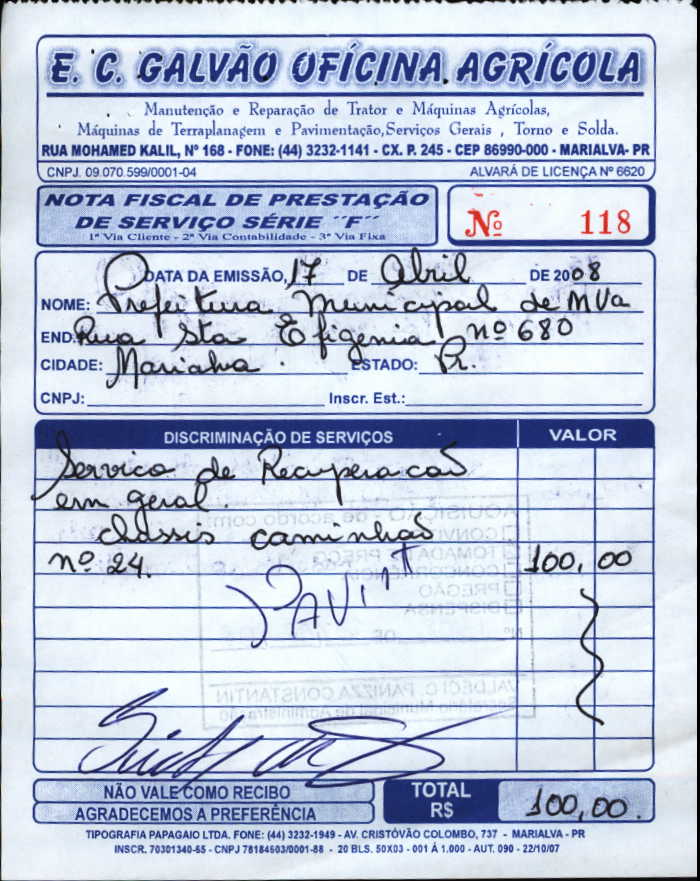 E. C. GALVÃO OFÍCINA AGRÍCOLA
Manutenção e Reparação de Trator e Máquinas Agrícolas,
Máquinas de Terraplanagem e Pavimentação,Serviços Gerais , Torno e Solda.
RUA MOHAMED KALIL, Nº 168 - FONE: (44) 3232-1141 - CX. P. 245 - CEP 86990-000 - MARIALVA- PR
CNPJ. 09.070.599/0001-04 ALVARÁ DE LICENÇA Nº 6620
NOTA FISCAL DE PRESTAÇÃO
DE SERVIÇO SÉRIE ´´F´´
1ª Via Cliente - 2ª Via Contabilidade - 3ª Via Fixa
Nº 118
DATA DA EMISSÃO, 17 DE Abril DE 2008
NOME: Prefeitura Municipal de MVa
END. Rua Sta Efigenia nº 680
CIDADE: Marialva. ESTADO: Pr.
CNPJ: Inscr. Est.:
DISCRIMINAÇÃO DE SERVIÇOS VALOR
Serviço de Recuperacão
em geral.
chassis caminhão
nº 24. 100,00
PAVIM
AQUISIÇÃO - de acordo com:
TOMADA PREÇO
CONCORRÊNCIA
PREGÃO
DISPENSA
Nº DE
VALDECI C. PANIZZA CONSTANTIN
Secretário Municipal de Administração
NÃO VALE COMO RECIBO
AGRADECEMOS A PREFERÊNCIA
TOTAL
R$ 100,00.
TIPOGRAFIA PAPAGAIO LTDA. FONE: (44) 3232-1949 - AV. CRISTÓVÃO COLOMBO, 737 - MARIALVA - PR
INSCR. 70301340-65 - CNPJ 78184603/0001-88 - 20 BLS. 50X03 - 001 Á 1.000 - AUT. 090 - 22/10/07